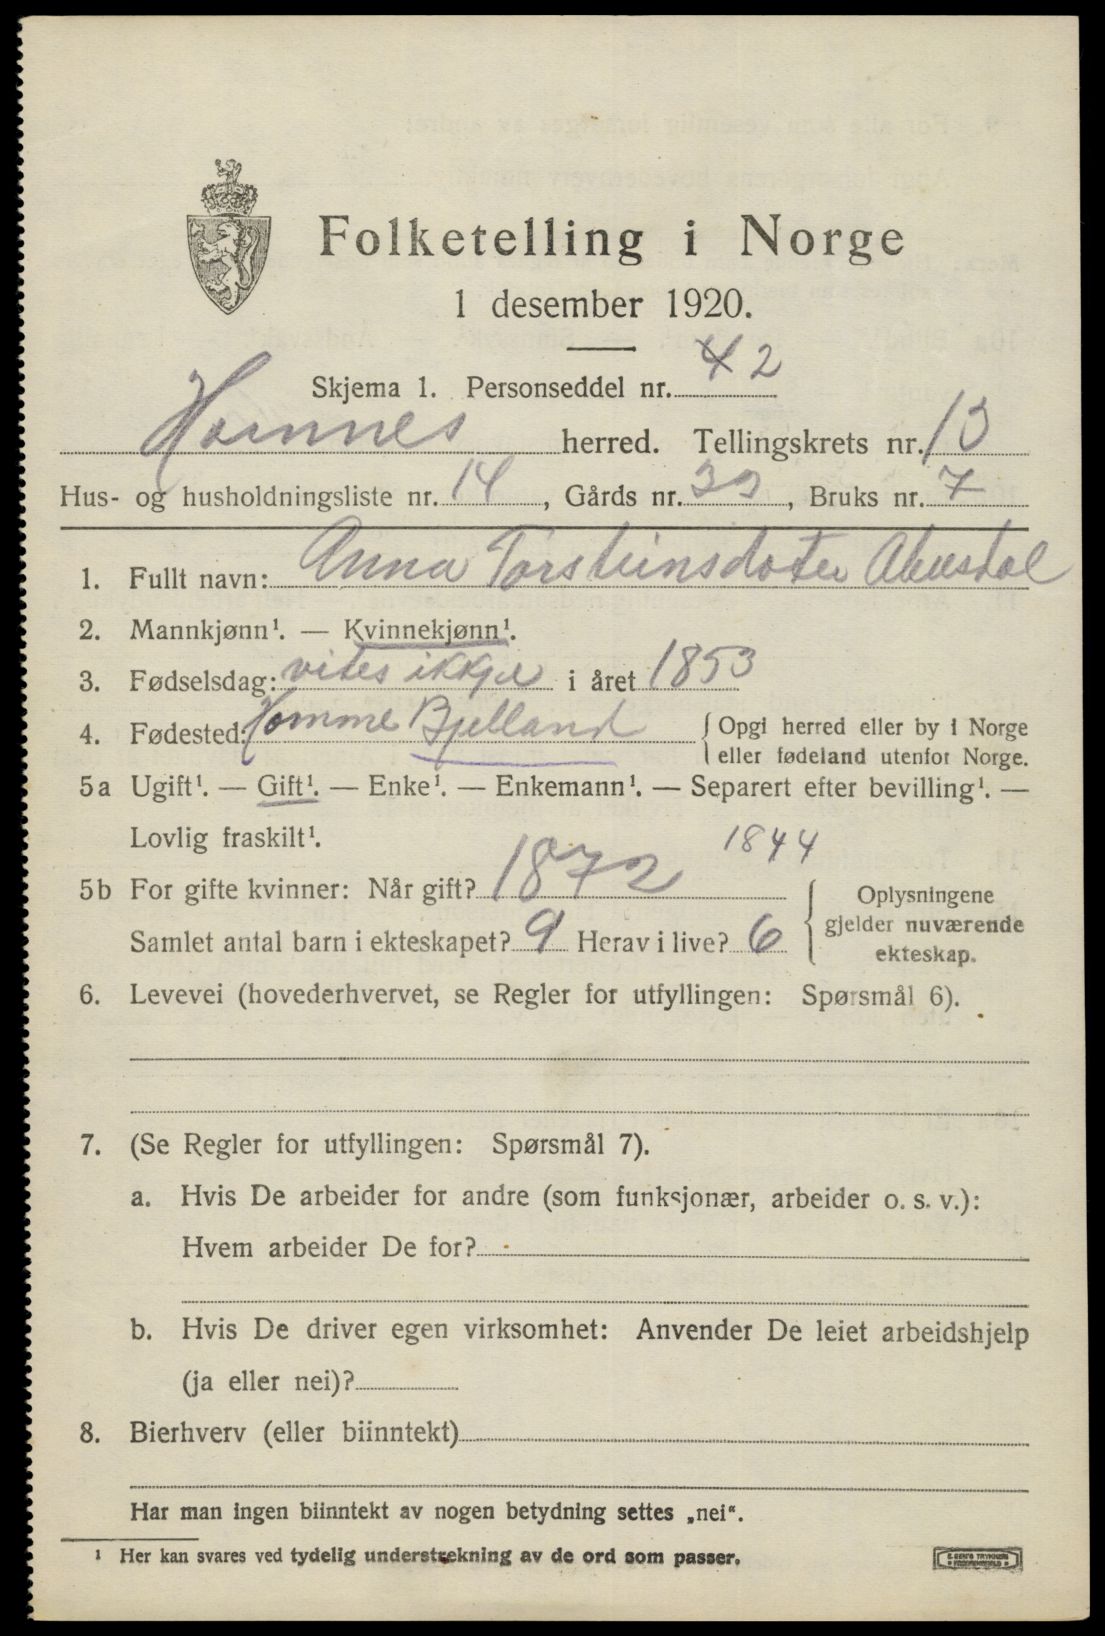 Folketelling i Norge
1 desember 1920.
Skjema 1. Personseddel nr. 42
Homnes herred. Tellingskrets nr. 13
Hus- og husholdningsliste nr. 14, Gårds nr. 33, Bruks nr. 7
1. Fullt navn: Anna Torsteinsdoter
2. Mannkjønn¹. — Kvinnekjønn¹.
3. Fødselsdag: vites ikkje i året 1853
4. Fødested: Homme Bjelland { Opgi herred eller by i Norge
eller fødeland utenfor Norge.
5a Ugift¹. — Gift¹. — Enke¹. — Enkemann¹. — Separert efter bevilling¹. —
Lovlig fraskilt¹. 1844
5b For gifte kvinner: Når gift? 1872 { Oplysningene
gjelder nuværende
Samlet antal barn i ekteskapet? 9 Herav i live? 6 ekteskap.
6. Levevei (hovederhvervet, se Regler for utfyllingen: Spørsmål 6).
7. (Se Regler for utfyllingen: Spørsmål 7).
a. Hvis De arbeider for andre (som funksjonær, arbeider o. s. v.):
Hvem arbeider De for?
b. Hvis De driver egen virksomhet: Anvender De leiet arbeidshjelp
(ja eller nei)?
8. Bierhverv (eller biinntekt)
Har man ingen biinntekt av nogen betydning settes „nei".
¹ Her kan svares ved tydelig understrekning av de ord som passer.